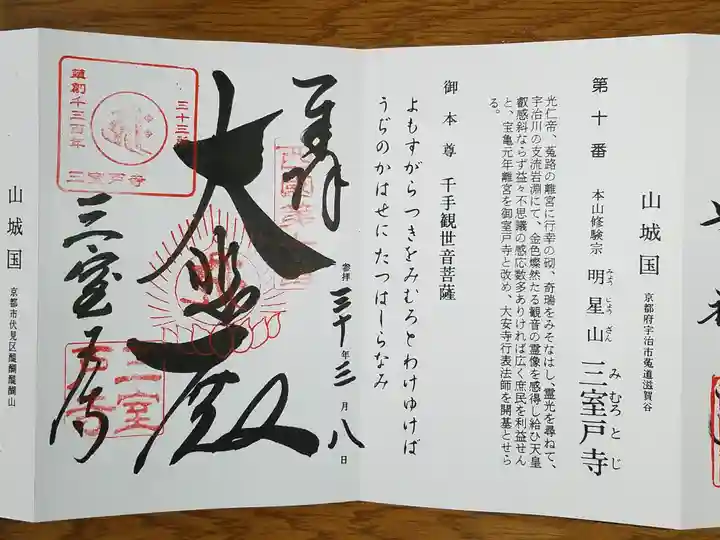 山城国
京都府宇治市菟道滋賀谷
第十番
本山修験宗
明星山
みょうじょうざん
三室戸寺
みむろとじ
光仁帝、菟路の離宮に行幸の砌、奇瑞をみそなはし、霊光を尋ねて、
宇治川の支流岩淵にて、金色燦然たる観音の霊像を感得し給ひ天皇
叡感斜ならず益々不思議の感応数多ありければ広く庶民を利益せん
と、宝亀元年離宮を御室戸寺と改め、大安寺行表法師を開基とせら
る。
御本尊 千手観世音菩薩
よもすがらつきをみむろとわけゆけば
うぢのかはせにたつはしらなみ
奉拝
参拝三十年三月八日
大悲殿
三室戸寺
草創千三百年
三十三所
三室戸寺
三室戸寺
山城国
京都市伏見区醍醐醍醐山